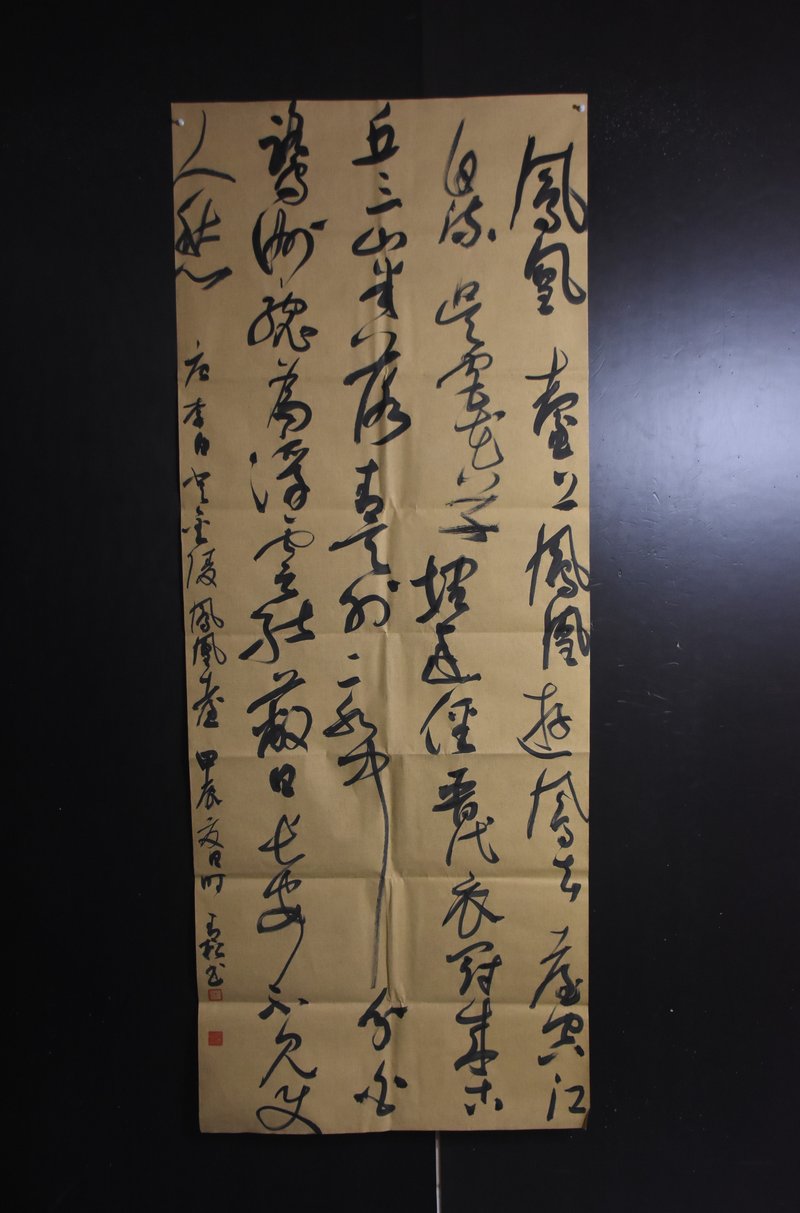 鳳凰臺上鳳凰遊鳳去臺空江
自流吳宮花草埋幽徑晉代衣冠成古
丘三山半落青天外二水中分白
鷺洲總為浮雲能蔽日長安不見使
人愁 唐李白登金陵鳳凰臺 甲辰夏日时 松书